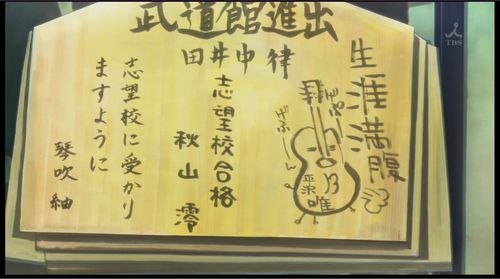 武道館進出
田井中 律
生涯満腹
げぷっ
げふー
平沢
唯
志望校合格
秋山 澪
志望校に受かり
ますように
琴吹 紬
TBS